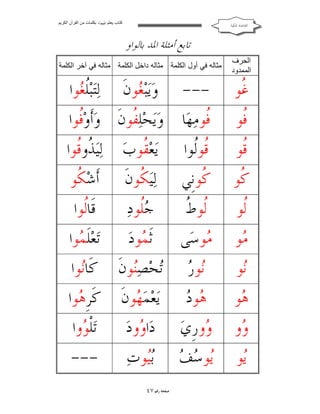 كتاب يعلم تهجود بكلمات من القرآن الكريم
تابع أمثلة المد بالواو
الحرف الممدود مثاله في أول الكلمة مثاله داخل الكلمة مثاله في آخر الكلمة
غُو --- وَيَبْغُونَ لِتَبْلُغُوا
فُو فُومِهَا وَيَحْلِفُونَ وَأَوْفُوا
قُو قُولُوا يَعْقُوبَ لِيَذُوقُوا
كُو كُونِي لِيَكُونَ أَشْكُو
لُو لُوطُ جُلُودِ قَالُوا
مُو مُوسَى ثَمُودَ تَعْلَمُوا
نُو نُورُ تُحْصِنُونَ كَانُوا
هُو هُودُ يَعْمَهُونَ كَرِهُوا
وُو وُورِيَ دَاوُودَ تَلْوُوا
يُو يُوسُفُ بُيُوتِ ---
صفحة رقم ٤٧